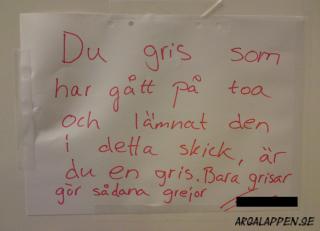 Du gris som
har gått på toa
och lämnat den
i detta skick, är
du en gris. Bara grisar
gör sådana grejor
ARGALAPPEN.SE